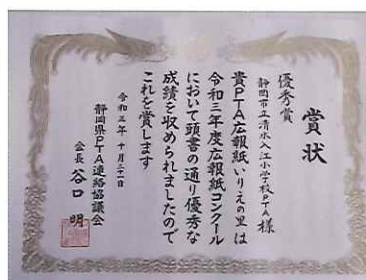 賞状
優秀賞
静岡市立清水入江小学校PTA 様
貴PTA広報紙いりえの里は
令和三年度広報紙コンクール
において頭書の通り優秀な
成績を収められましたので
これを賞します
令和三年 十月三十一日
静岡県PTA連絡協議会
会長 谷口 明